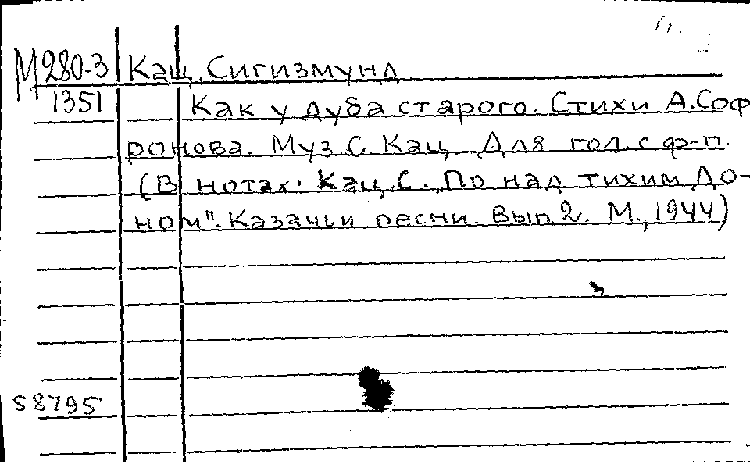 М280-3 Кац, Сигизмунд
1351 Как у дуба старого. Стихи А.Соф
ронова. Муз С. Кац. Для гол. с ф-п.
(В нотах: Кац, С. По над тихим До-
ном". Казачьи песни. Вып. 2. М., 1944)
58795